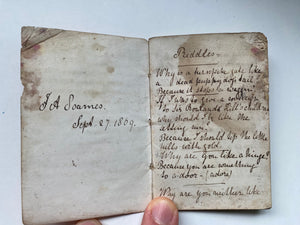 J A Soames.
Sept. 27. 1809.
Riddles
Why is a turnpike gate like
a dead puppy dog's tail
Because it stops a waggin'.
If I was to give a
to Sir Rowland Hill's child
why should I be like the
setting sun.
Because I should tip the little
hills with gold.
Why are you like a hinge?
Because you are something
to a door - (adore)
Why are you neither like